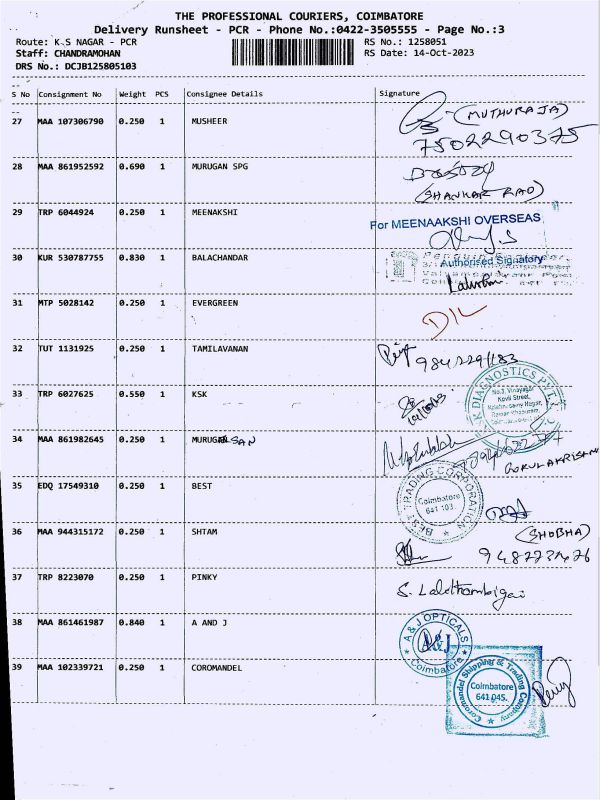 THE PROFESSIONAL COURIERS, COIMBATORE
Delivery Runsheet - PCR - Phone No.:0422-3505555 - Page No.:3
Route: K.S NAGAR - PCR RS No.: 1258051
Staff: CHANDRAMOHAN RS Date: 14-Oct-2023
DRS No.: DCJB125805103
S No Consignment No Weight PCS Consignee Details Signature
27 MAA 107306790 0.250 1 MUSHEER (MUTHURAJA)
7502290375
28 MAA 861952592 0.690 1 MURUGAN SPG
(SHANKAR RAO)
29 TRP 6044924 0.250 1 MEENAKSHI
For MEENAAKSHI OVERSEAS
30 KUR 530787755 0.830 1 BALACHANDAR
Authorised Signatory
31 MTP 5028142 0.250 1 EVERGREEN
D/L
32 TUT 1131925 0.250 1 TAMILAVANAN
33 TRP 6027625 0.550 1 KSK
K DIAGNOSTICS PVT.
No.3, Vinayagar
Kovil Street,
34 MAA 861982645 0.250 1 MURUGESAN
GOKULAKRISHNAN
35 EDQ 17549310 0.250 1 BEST
BEST TRADING CORPORATION
Coimbatore
641 103.
36 MAA 944315172 0.250 1 SHTAM
(SHOBHA)
37 TRP 8223070 0.250 1 PINKY
S. Lalithambigai
38 MAA 861461987 0.840 1 A AND J
A & J OPTICALS
A&J
Coimbatore
39 MAA 102339721 0.250 1 COROMANDEL
Coromandel Shipping & Trading Company
Coimbatore
641 045.